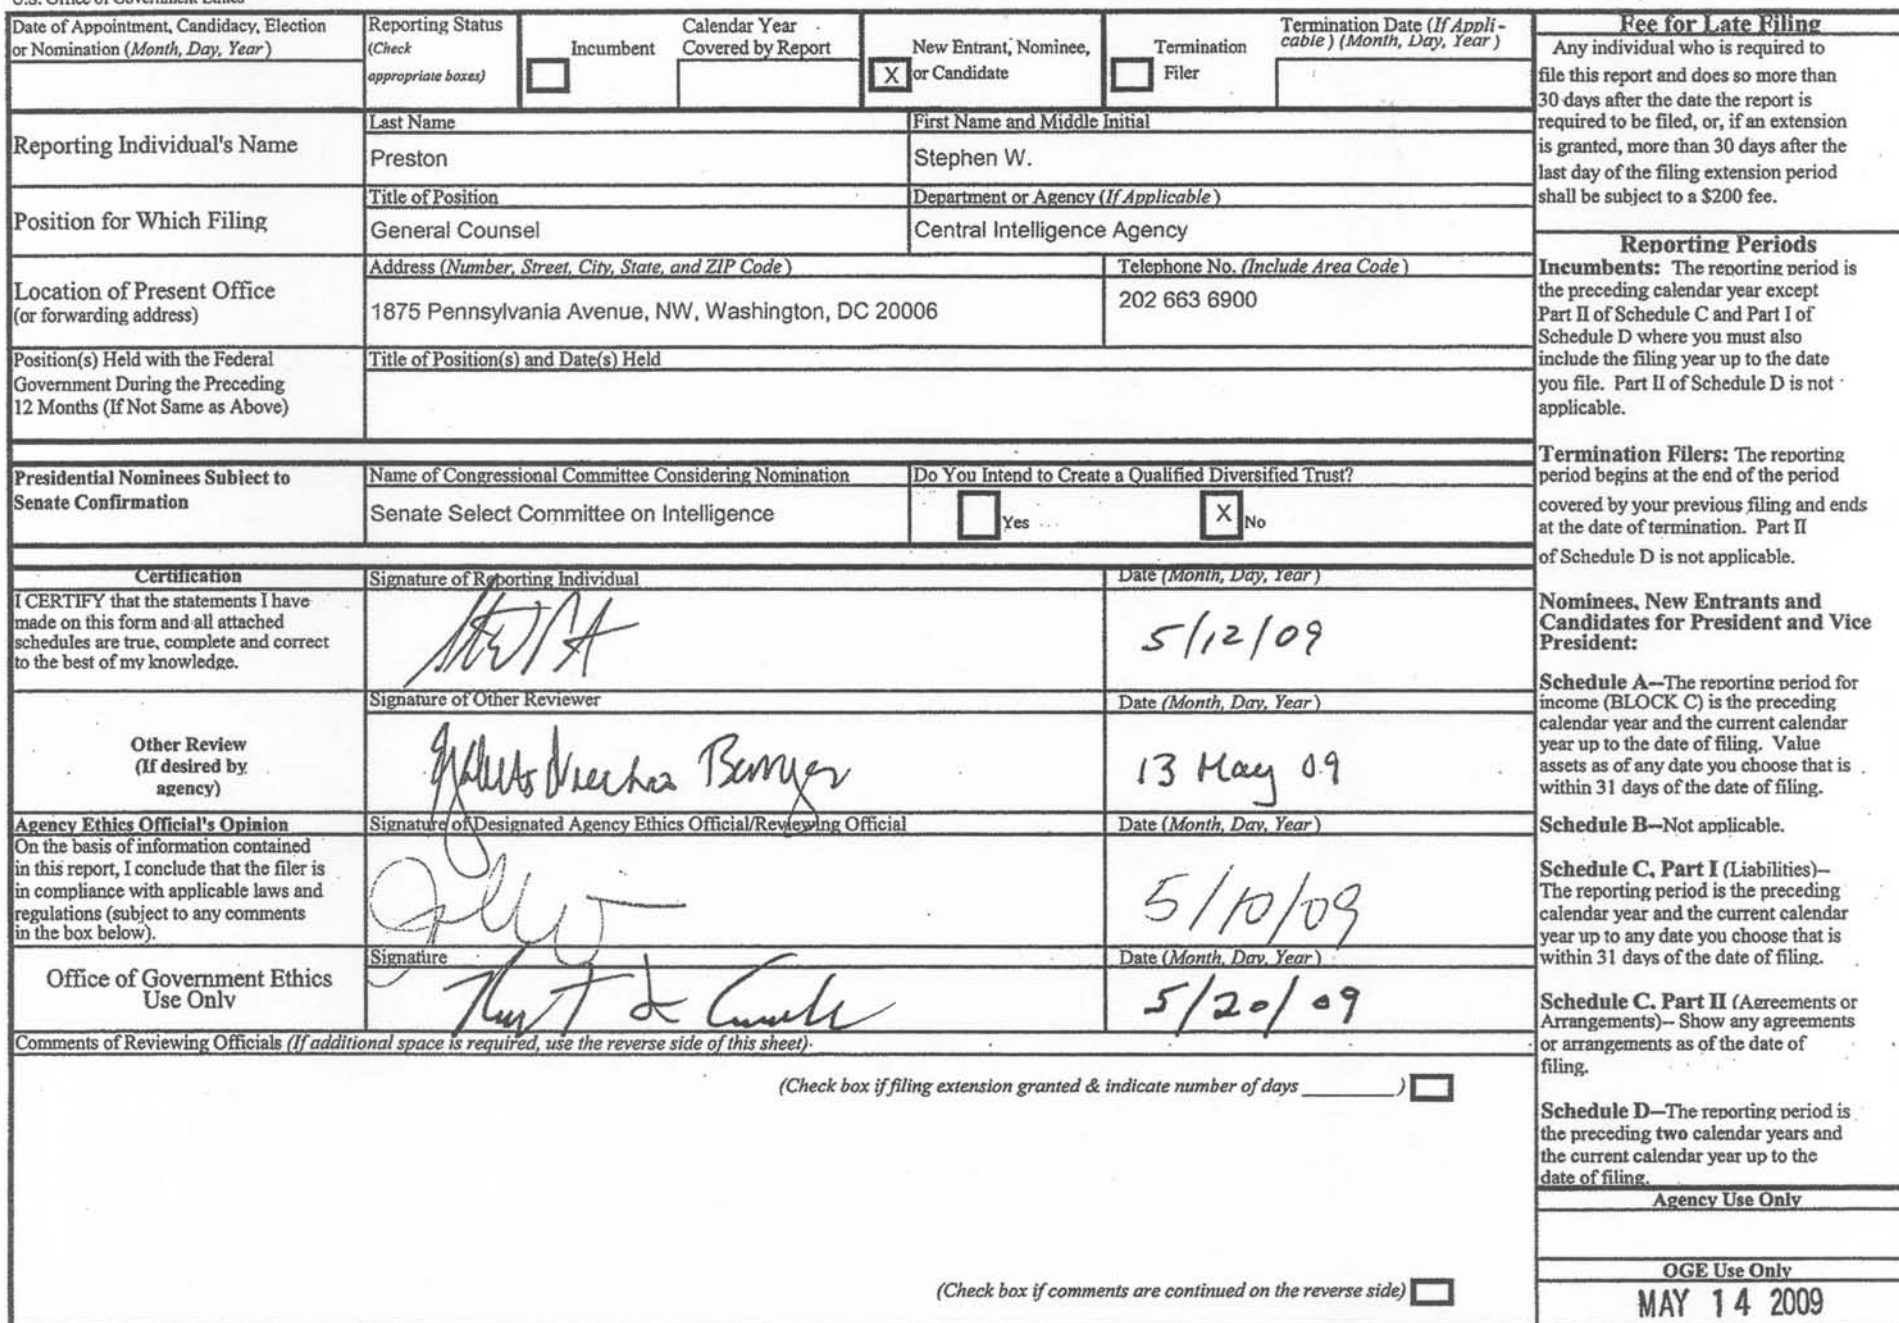 Date of Appointment, Candidacy, Election
or Nomination (Month, Day, Year)
Reporting Status
(Check
appropriate boxes)
Incumbent
Calendar Year
Covered by Report
X
New Entrant, Nominee,
or Candidate
Termination
Filer
Termination Date (If Appli-
cable) (Month, Day, Year)
Reporting Individual's Name
Last Name
Preston
First Name and Middle Initial
Stephen W.
Position for Which Filing
Title of Position
General Counsel
Department or Agency (If Applicable)
Central Intelligence Agency
Location of Present Office
(or forwarding address)
Address (Number, Street, City, State, and ZIP Code)
1875 Pennsylvania Avenue, NW, Washington, DC 20006
Telephone No. (Include Area Code)
202 663 6900
Position(s) Held with the Federal
Government During the Preceding
12 Months (If Not Same as Above)
Title of Position(s) and Date(s) Held
Presidential Nominees Subject to
Senate Confirmation
Name of Congressional Committee Considering Nomination
Senate Select Committee on Intelligence
Do You Intend to Create a Qualified Diversified Trust?
Yes
X No
Certification
I CERTIFY that the statements I have
made on this form and all attached
schedules are true, complete and correct
to the best of my knowledge.
Signature of Reporting Individual
Date (Month, Day, Year)
5/12/09
Other Review
(If desired by
agency)
Signature of Other Reviewer
Date (Month, Day, Year)
13 May 09
Agency Ethics Official's Opinion
On the basis of information contained
in this report, I conclude that the filer is
in compliance with applicable laws and
regulations (subject to any comments
in the box below).
Signature of Designated Agency Ethics Official/Reviewing Official
Date (Month, Day, Year)
5/10/09
Office of Government Ethics
Use Only
Signature
Date (Month, Day, Year)
5/20/09
Comments of Reviewing Officials (If additional space is required, use the reverse side of this sheet)
(Check box if filing extension granted & indicate number of days ________)
(Check box if comments are continued on the reverse side)
Fee for Late Filing
Any individual who is required to
file this report and does so more than
30 days after the date the report is
required to be filed, or, if an extension
is granted, more than 30 days after the
last day of the filing extension period
shall be subject to a $200 fee.
Reporting Periods
Incumbents: The reporting period is
the preceding calendar year except
Part II of Schedule C and Part I of
Schedule D where you must also
include the filing year up to the date
you file. Part II of Schedule D is not
applicable.
Termination Filers: The reporting
period begins at the end of the period
covered by your previous filing and ends
at the date of termination. Part II
of Schedule D is not applicable.
Nominees, New Entrants and
Candidates for President and Vice
President:
Schedule A--The reporting period for
income (BLOCK C) is the preceding
calendar year and the current calendar
year up to the date of filing. Value
assets as of any date you choose that is
within 31 days of the date of filing.
Schedule B--Not applicable.
Schedule C, Part I (Liabilities)--
The reporting period is the preceding
calendar year and the current calendar
year up to any date you choose that is
within 31 days of the date of filing.
Schedule C, Part II (Agreements or
Arrangements)-- Show any agreements
or arrangements as of the date of
filing.
Schedule D--The reporting period is
the preceding two calendar years and
the current calendar year up to the
date of filing.
Agency Use Only
OGE Use Only
MAY 14 2009